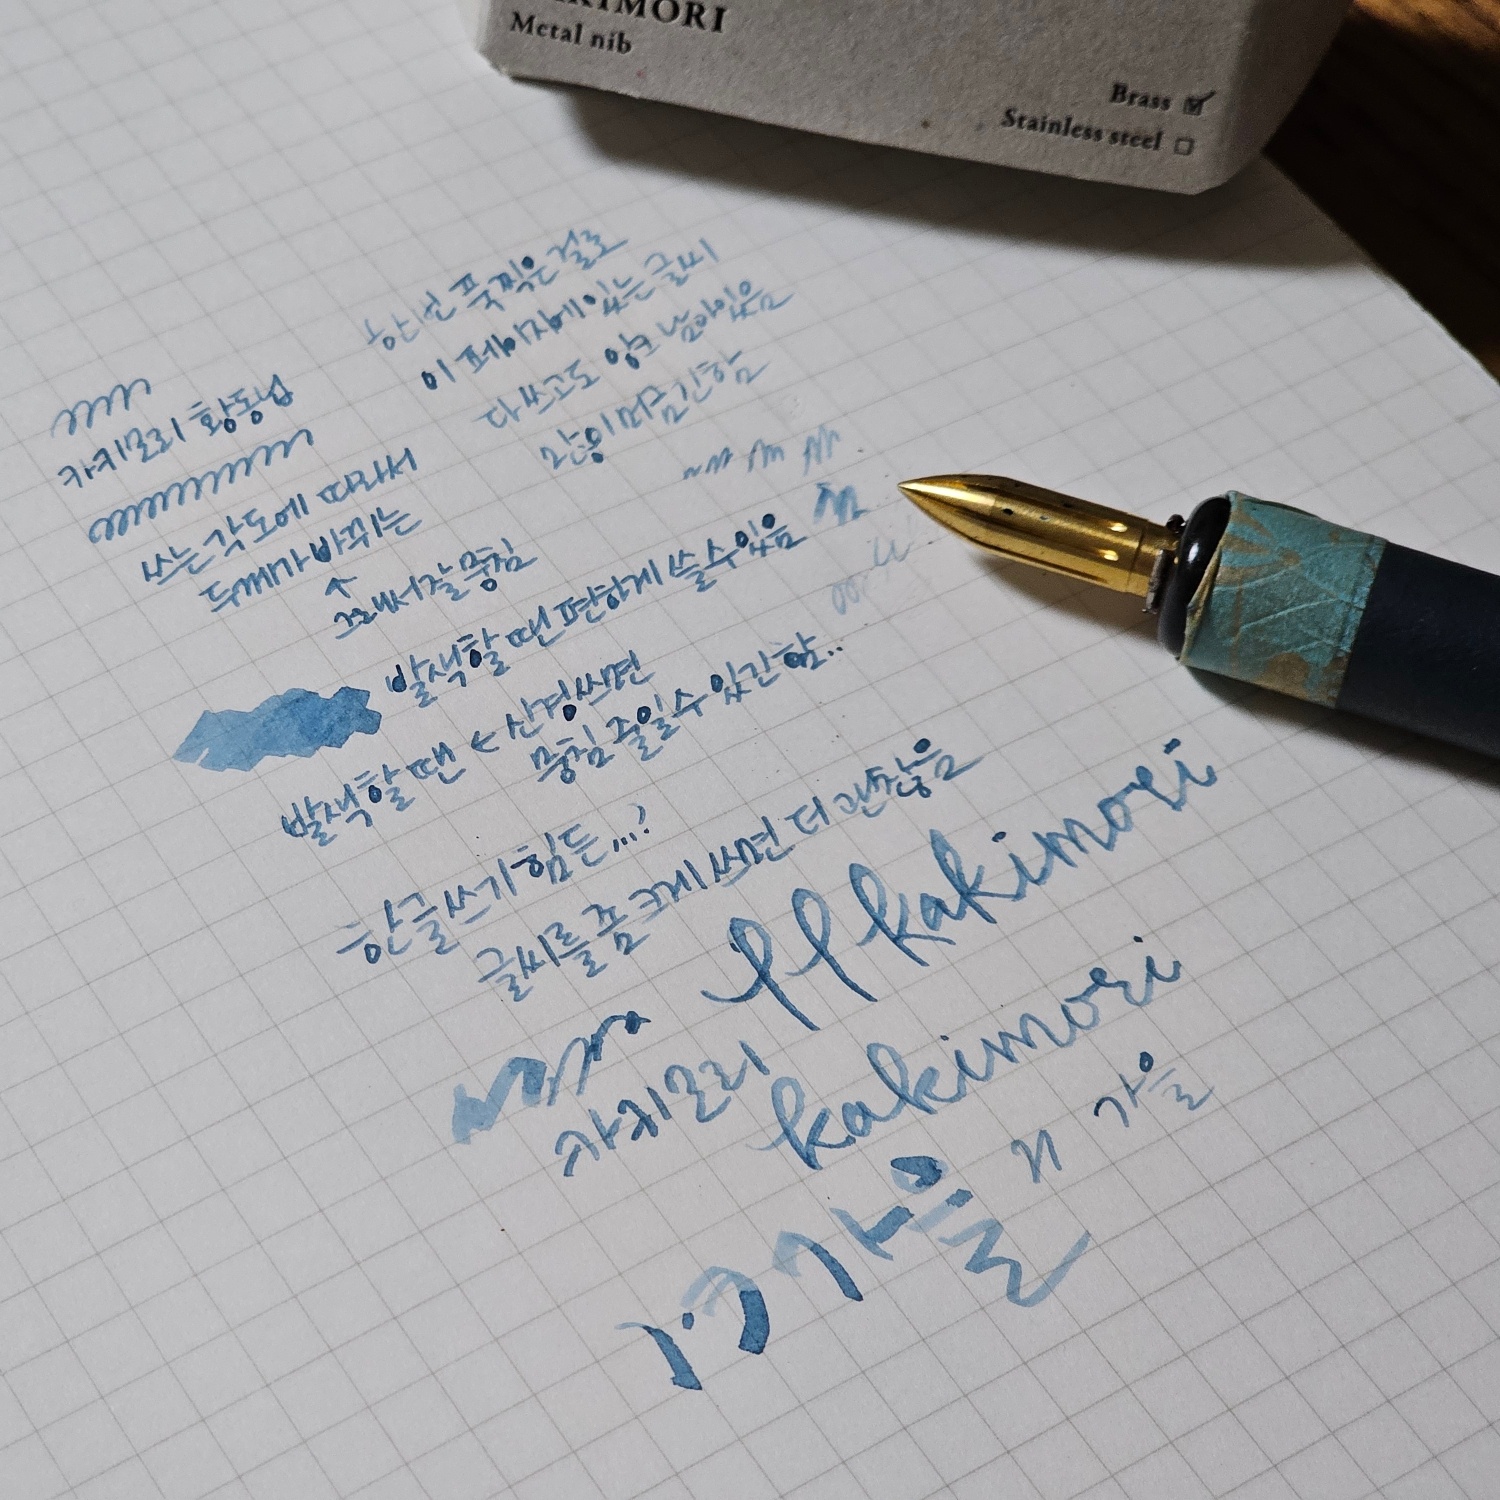 KIMORI
Metal nib
Brass
Stainless steel
한번 푹 찍은 걸로
이 페이지에 있는 글씨
다 쓰고도 잉크 남아있음
많이 머금긴 함
카키모리 황동닙
쓰는 각도에 따라서
두께가 바뀌는
↑
그래서 잘 뭉침
발색할 땐 편하게 쓸 수 있음
발색할 땐 ← 신경쓰면
뭉침 줄일 수 있긴 함..
한글 쓰기 힘든...?
글씨를 좀 크게 쓰면 더 괜찮음
kakimori
카키모리
kakimori
가을
가을